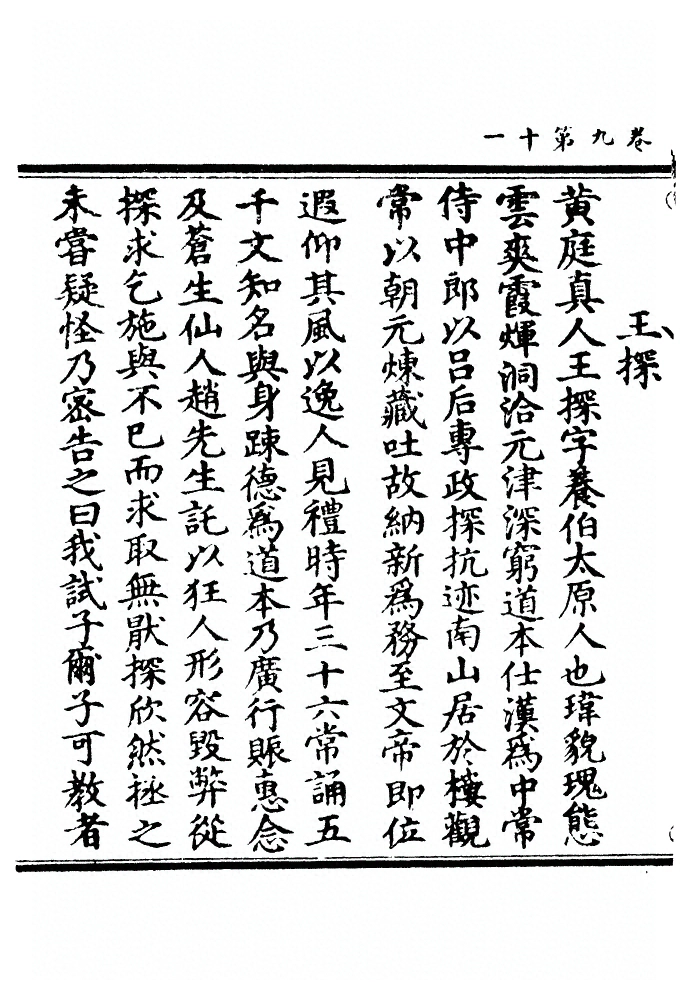 卷九第十一
王探
黃庭真人王探字養伯太原人也瑋貌瑰態
雲爽霞煇洞洽元津深窮道本仕漢爲中常
侍中郎以吕后專政探抗迹南山居於樓觀
常以朝元煉藏吐故納新爲務至文帝即位
遐仰其風以逸人見禮時年三十六常誦五
千文知名與身踈德爲道本乃廣行賑惠念
及蒼生仙人趙先生託以狂人形容毀弊從
探求乞施與不已而求取無猒探欣然拯之
未嘗疑怪乃密告之曰我試子爾子可教者